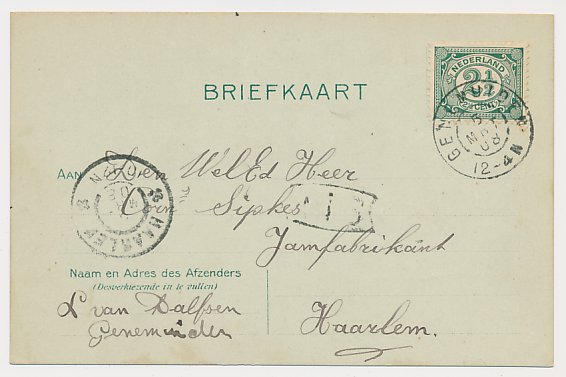 NEDERLAND
2½
2½ CENT
BRIEFKAART
GENEMUIDEN
MRT
08
12-4N
AAN Den WelEd Heer
HAARLEM
Sipkes
Jamfabrikant
Naam en Adres des Afzenders
(Desverkiezende in te vullen)
L van Dalfsen
Genemuiden
Haarlem.